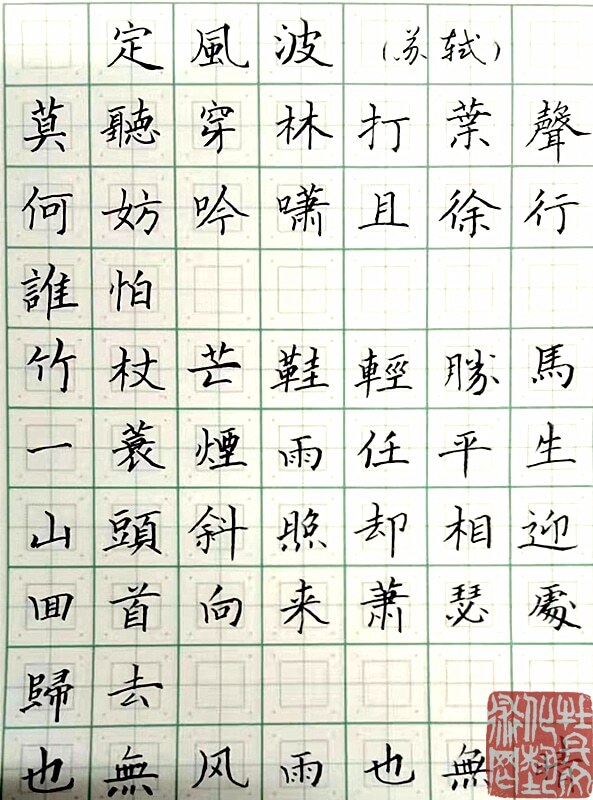 定風波(苏轼)
莫聽穿林打葉聲
何妨吟嘯且徐行
誰怕
竹杖芒鞋輕勝馬
一蓑煙雨任平生
山頭斜照却相迎
回首向来蕭瑟處
歸去
也無风雨也無晴